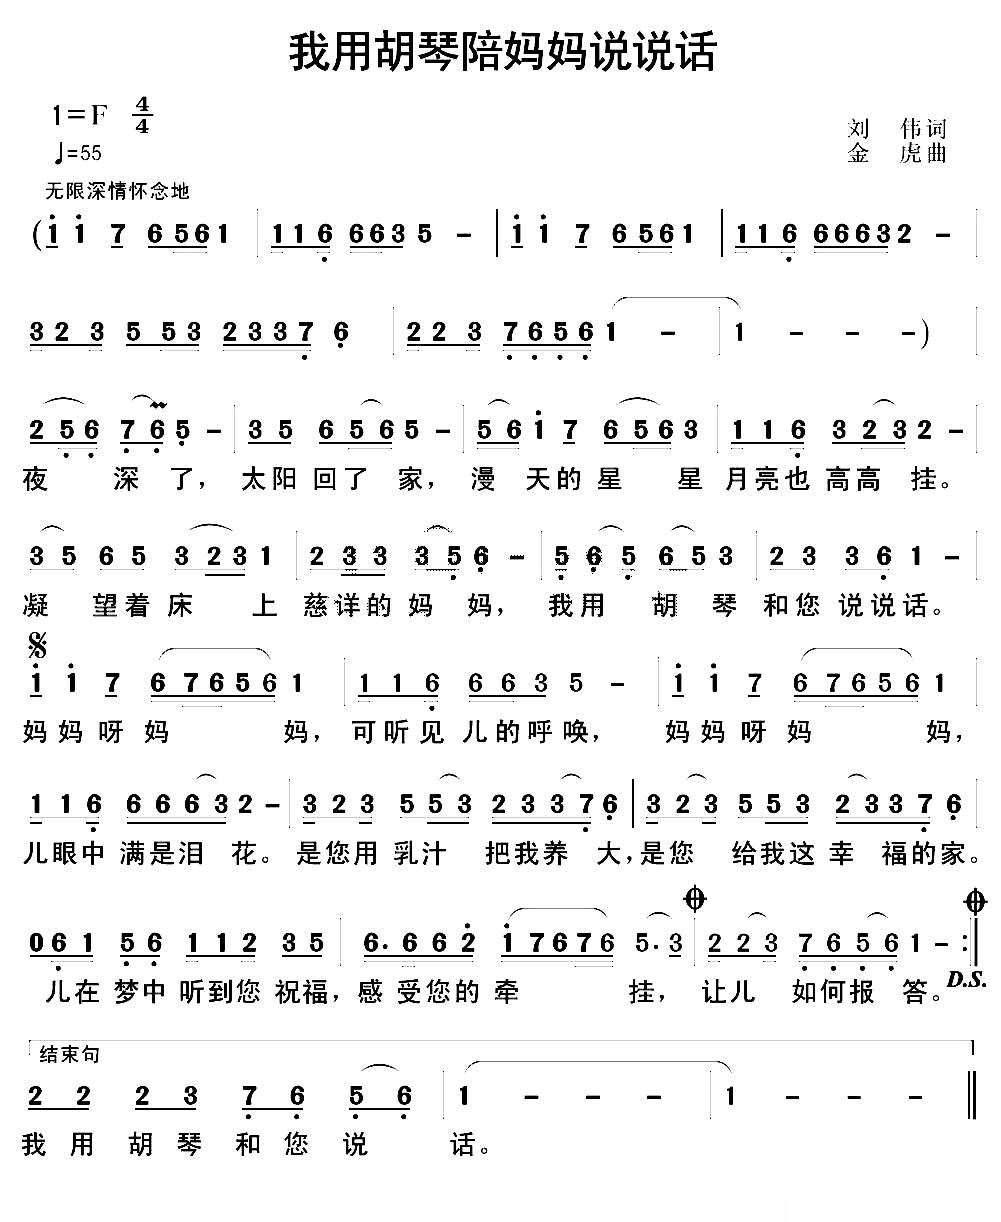 我用胡琴陪妈妈说说话
1=F 4/4
♩=55
刘 伟词
金 虎曲
无限深情怀念地
(1 1 7 6 561 | 116 6635 - | 1 1 7 6 561 | 116 66632 -
323 553 2337 6 | 223 76561 - | 1 - - -)
256 765 - | 35 6565 - | 5617 6563 | 116 3232 -
夜 深 了, 太阳回了 家, 漫 天的星 星 月亮也高高 挂。
35 65 3231 | 233 356 - | 565 653 | 23 361 -
凝 望着床 上 慈详的妈 妈, 我用 胡 琴和您说说话。
𝄋
1 1 7 676561 | 116 6635 - | 1 1 7 676561
妈妈呀妈 妈, 可听见儿的呼唤, 妈妈呀妈 妈,
116 66632 - | 323 553 23376 | 323 553 2337 6
儿眼中满是泪 花。是您用乳汁 把我养 大,是您 给我这幸 福的家。
061 56 112 35 | 6. 662 17676 5. 3 | 223 76561 - :|
儿在梦中听到您祝福,感受您的牵 挂, 让儿 如何报 答。
D.S.
结束句
2 2 2 3 7 6 5 6 | 1 - - - | 1 - - - ||
我 用 胡 琴 和 您 说 话。